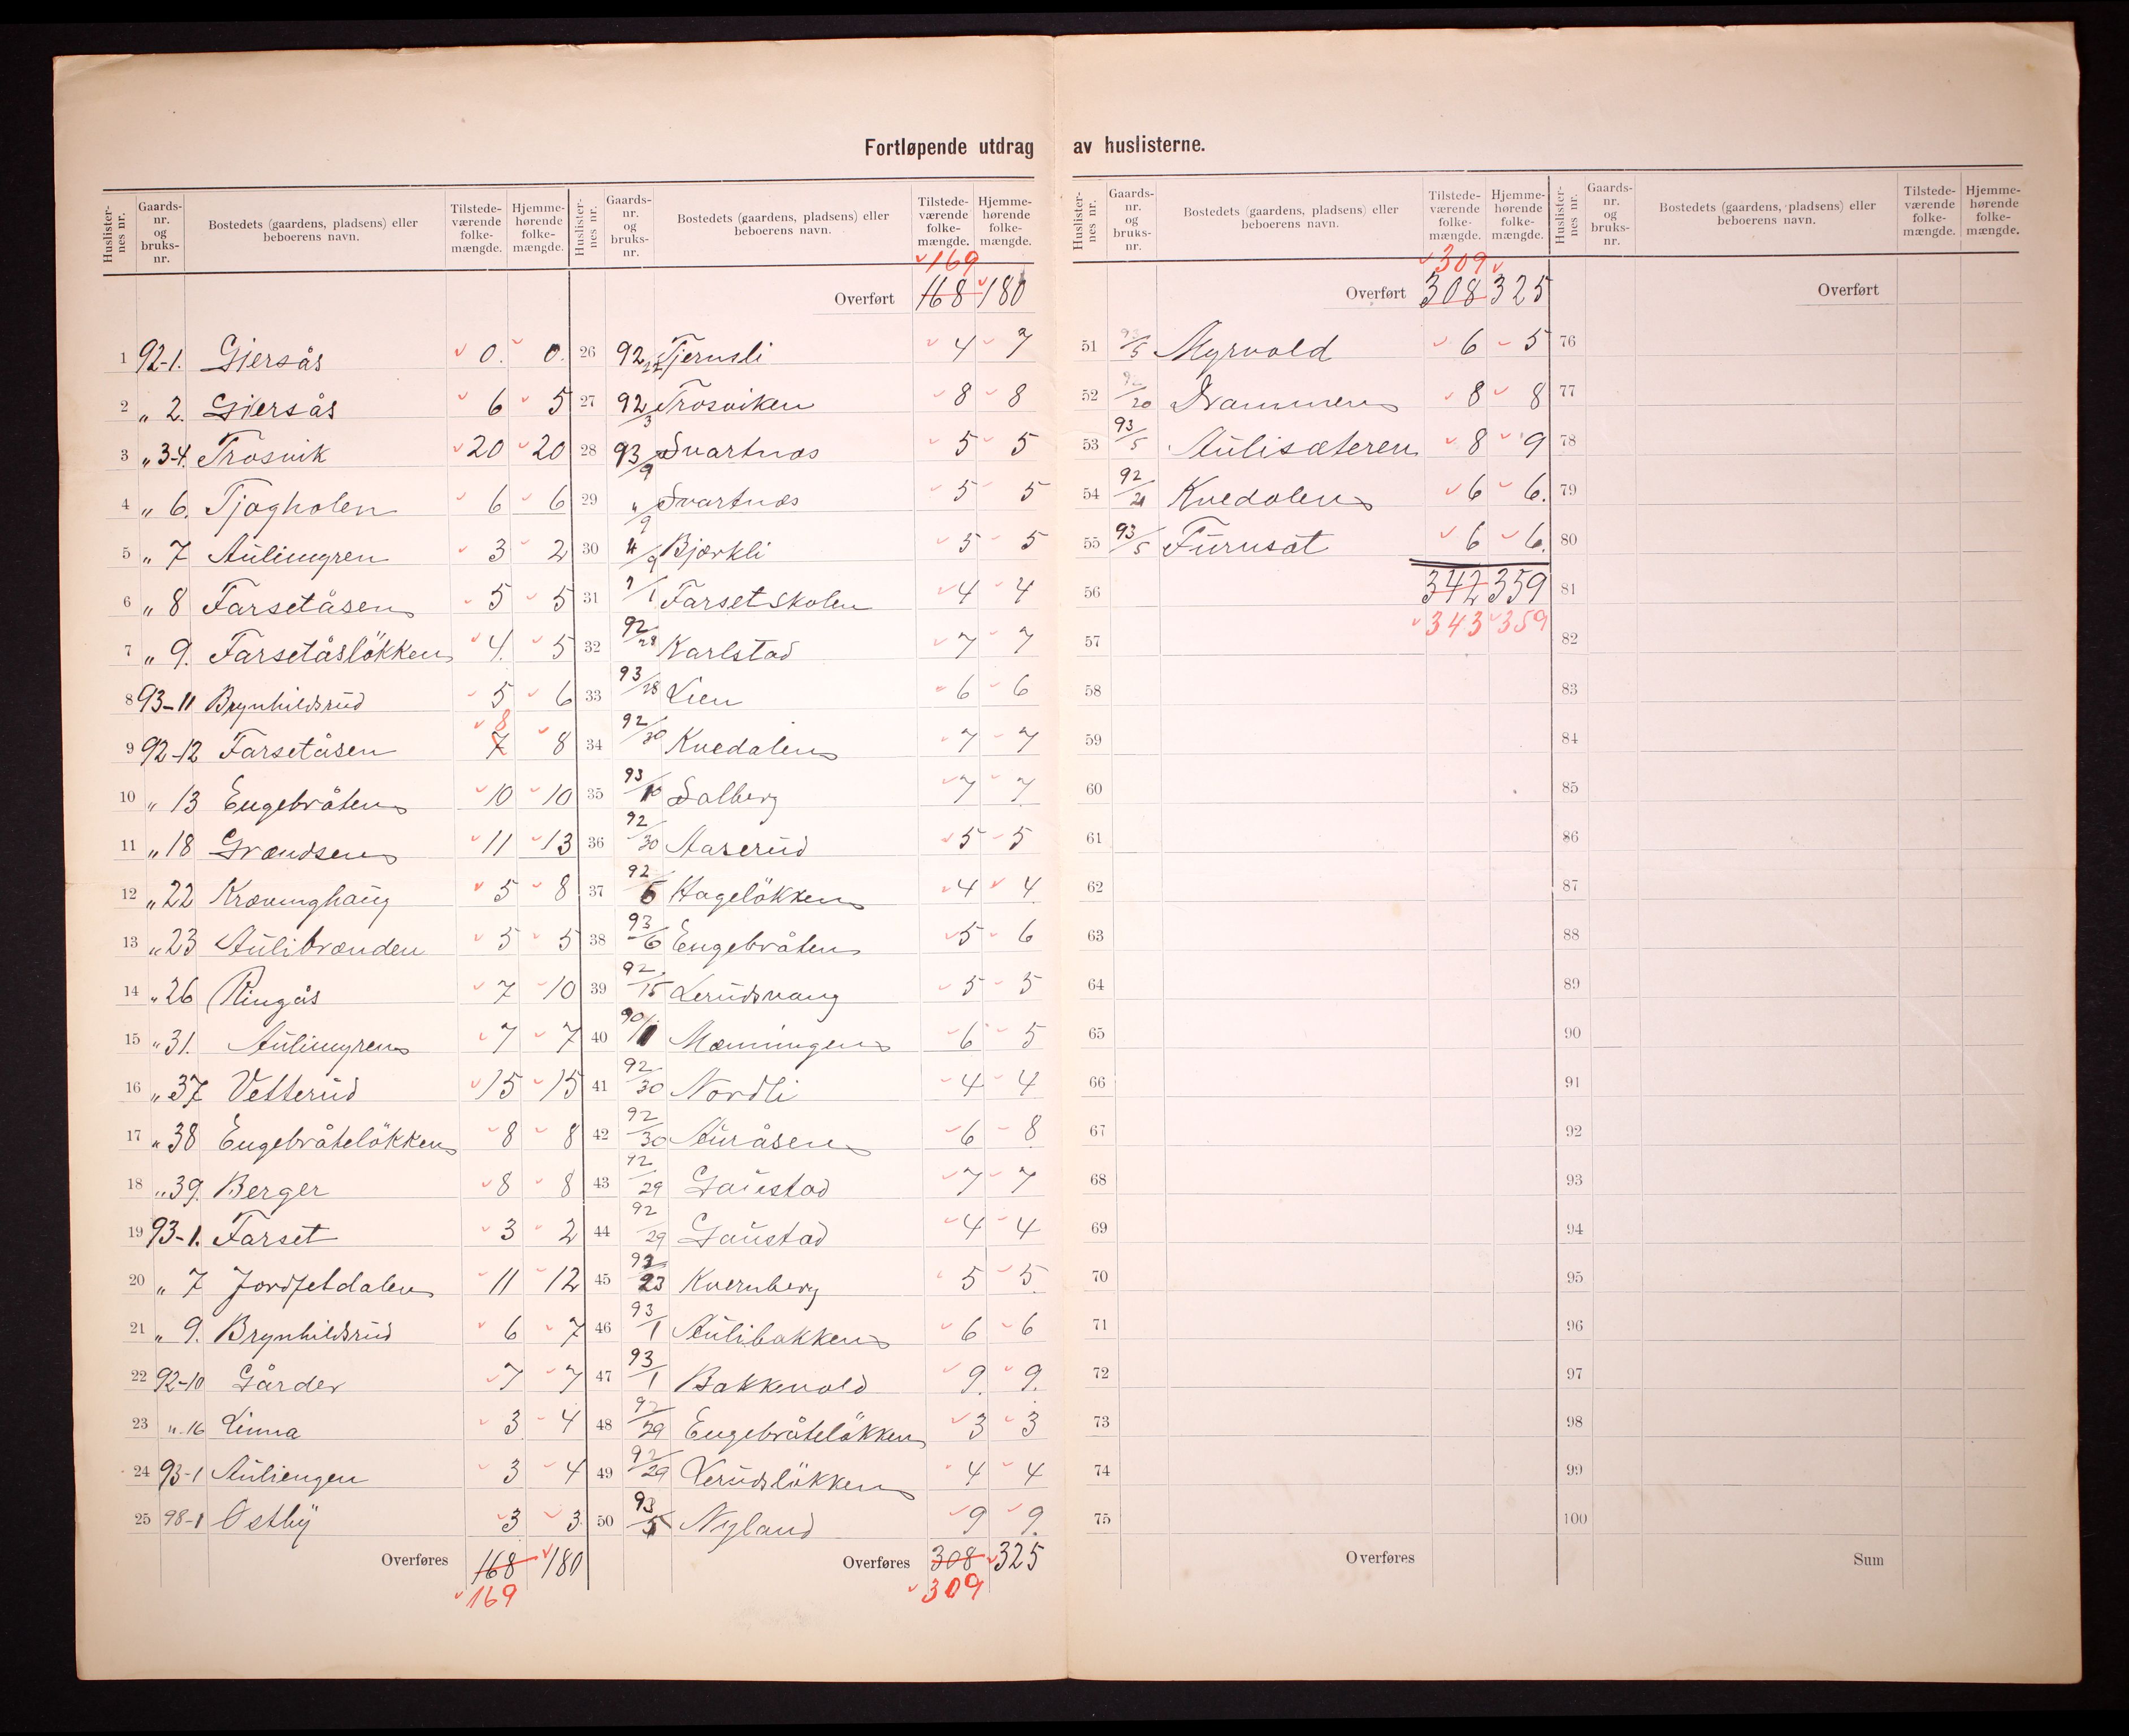 Fortløpende utdrag av huslisterne.
Huslisternes nr. Gaardsnr. og bruksnr. Bostedets (gaardens, pladsens) eller beboerens navn. Tilstedeværende folkemængde. Hjemmehørende folkemængde.
1 92-1. Gjersås 0. 0.
2 " 2. Gjersås 6 5
3 " 3-4. Trosvik 20 20
4 " 6. Tjogholen 6 6
5 " 7 Aulimyren 3 2
6 " 8 Farsetåsen 5 5
7 " 9. Farsetåslökken 4. 5
8 93-11 Brynhildsrud 5 6
9 92-12 Farsetåsen 7 8 8
10 " 13 Engebråten 10 10
11 " 18 Grændsen 11 13
12 " 22 Kræminghaug 5 8
13 " 23 Aulibrænden 5 5
14 " 26 Ringås 7 10
15 " 31. Aulimyren 7 7
16 " 37 Vetterud 15 15
17 " 38 Engebråtelökken 8 8
18 " 39. Berger 8 8
19 93-1. Farset 3 2
20 " 7 Jordfetdalen 11 12
21 " 9. Brynhildsrud 6 7
22 92-10 Gårder 7 7
23 " 16 Linna 3 4
24 93-1 Auliengen 3 4
25 98-1 Østby 3 3
Overføres 168 180
169
Huslisternes nr. Gaardsnr. og bruksnr. Bostedets (gaardens, pladsens) eller beboerens navn. Tilstedeværende folkemængde. Hjemmehørende folkemængde.
169
Overført 168 180
26 92 Tjernsli 4 7
27 92/3 Trosviken 8 8
28 93/9 Svartnæs 5 5
29 "/9 Svartnæs 5 5
30 "/9 Bjørkli 5 5
31 "/1 Farset skolen 4 4
32 92/28 Karlstad 7 7
33 93/18 Lien 6 6
34 92/30 Kvedalen 7 7
35 93/10 Solberg 7 7
36 92/30 Aaserud 5 5
37 92/6 Hagelökken 4 4
38 93/6 Engebråten 5 6
39 92/15 Lerudsvang 5 5
40 90/1 Mæningen 6 5
41 92/30 Nordli 4 4
42 92/30 Auråsen 6 8
43 92/29 Gaustad 7 7
44 92/29 Gaustad 4 4
45 92/23 Kvernberg 5 5
46 93/1 Aulibakken 6 6
47 93/1 Bakkevold 9. 9.
48 92/29 Engebråtelökken 3 3
49 92/29 Lerudslökken 4 4
50 93/5 Nyland 9 9.
Overføres 308 325
309
Huslisternes nr. Gaardsnr. og bruksnr. Bostedets (gaardens, pladsens) eller beboerens navn. Tilstedeværende folkemængde. Hjemmehørende folkemængde.
309
Overført 308 325
51 93/5 Myrvold 6 5
52 92/20 Drammen 8 8
53 93/5 Aulisæteren 8 9
54 92/21 Kvedolen 6 6.
55 93/5 Furusæt 6 6.
56 342 359
57 343 359
58
59
60
61
62
63
64
65
66
67
68
69
70
71
72
73
74
75
Overføres
Huslisternes nr. Gaardsnr. og bruksnr. Bostedets (gaardens, pladsens) eller beboerens navn. Tilstedeværende folkemængde. Hjemmehørende folkemængde.
Overført
76
77
78
79
80
81
82
83
84
85
86
87
88
89
90
91
92
93
94
95
96
97
98
99
100
Sum